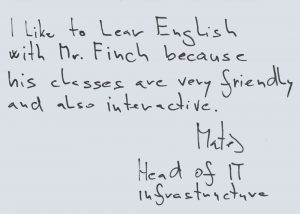 I Like to Lear English
with Mr. Finch because
his classes are very friendly
and also interactive.
Matej
Head of IT
Infrastructure